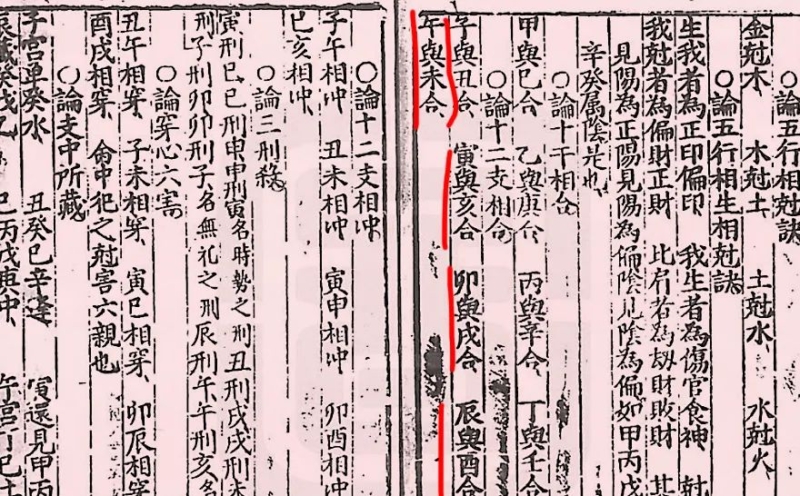 ○論五行相尅訣
金尅木 木尅土 土尅水 水尅火
○論五行相生相尅訣
生我者為正印偏印 我生者為傷官食神 尅
我尅者為偏財正財 比肩者為刼財敗財 其
見陽為正陽見陽為偏陰見陰為偏如甲丙戊
辛癸属陰是也
○論十干相合
甲與巳合 乙與庚合 丙與辛合 丁與壬合
○論十二支相合
子與丑合 寅與亥合 卯與戌合 辰與酉合
午與未合
○論十二支相冲
子午相冲 丑未相冲 寅申相冲 卯酉相冲
巳亥相冲
○論三刑殺
寅刑巳巳刑申申刑寅名時勢之刑丑刑戌戌刑未
刑子刑卯卯刑子名無礼之刑辰刑午午刑亥名
○論穿心六害
丑午相穿 子未相穿 寅巳相穿 卯辰相穿
酉戌相穿 命中犯之尅害六親也
○論支中所藏
子宮单癸水 丑癸巳辛逢 寅還見甲丙
藏癸戊乙 巳丙戊庚中 午宮丁巳土